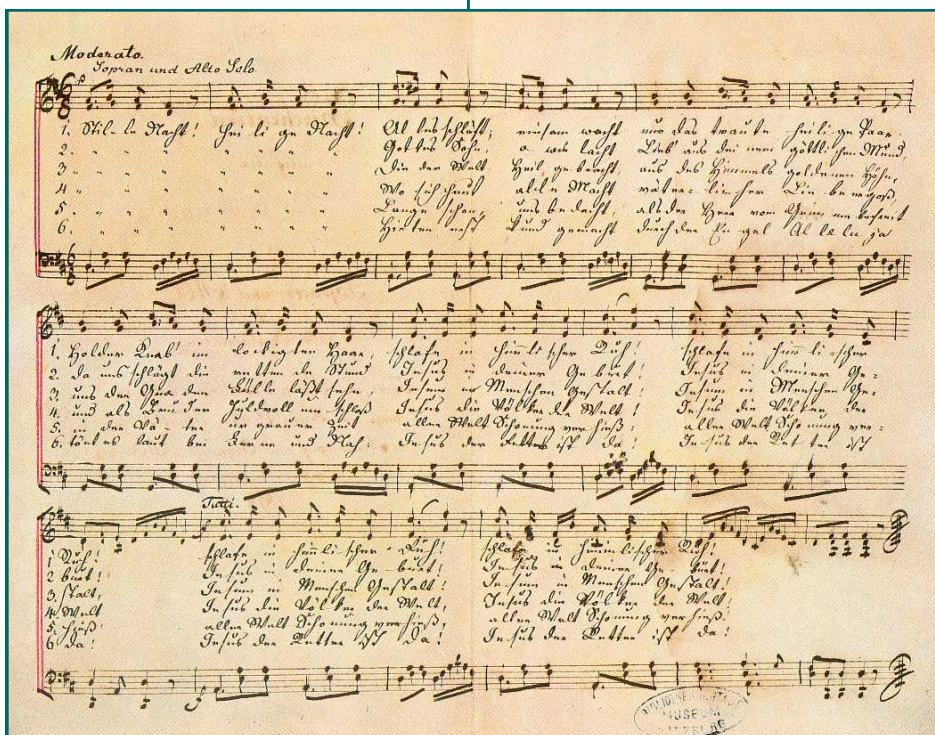 Moderato.
Sopran und Alto Solo
1. Stille Nacht! heilige Nacht! Alles schläft; einsam wacht nur das traute heilige Paar.
2. " " " " " " Gottes Sohn, o wie lacht Lieb' aus deinem göttlichen Mund,
3. " " " " " " Die der Welt Heil gebracht, aus des Himmels goldenen Höhn,
4. " " " " " " Wo sich heut alle Macht väterlicher Liebe ergoß,
5. " " " " " " Lange schon uns bedacht, als der Herr vom Grimme befreit
6. " " " " " " Hirten erst kund gemacht durch der Engel Alleluja
1. Holder Knab' im lockigten Haar, schlafe in himmlischer Ruh! schlafe in himmlischer
2. da uns schlägt die rettende Stund Jesus in deiner Geburt! Jesus in deiner Ge-
3. uns der Gnaden Fülle läßt sehn, Jesum in Menschen Gestalt! Jesum in Menschen Ge-
4. und als Bruder huldvoll umschloß Jesus die Völker der Welt! Jesus die Völker der
5. in der Väter urgrauer Zeit aller Welt Schonung verhieß: aller Welt Schonung ver=
6. tönt es laut bei Ferne und Nah: Jesus der Retter ist da! Jesus der Retter ist
Tutti.
1 Ruh! schlafe in himmlischer Ruh! schlafe in himmlischer Ruh!
2 burt! Jesus in deiner Geburt! Jesus in deiner Geburt!
3. stalt, Jesum in Menschen Gestalt! Jesum in Menschen Gestalt!
4. Welt Jesus die Völker der Welt, Jesus die Völker der Welt!
5. hieß! aller Welt Schonung verhieß, aller Welt Schonung verhieß.
6 da! Jesus der Retter ist da! Jesus der Retter ist da!
MUSEUM